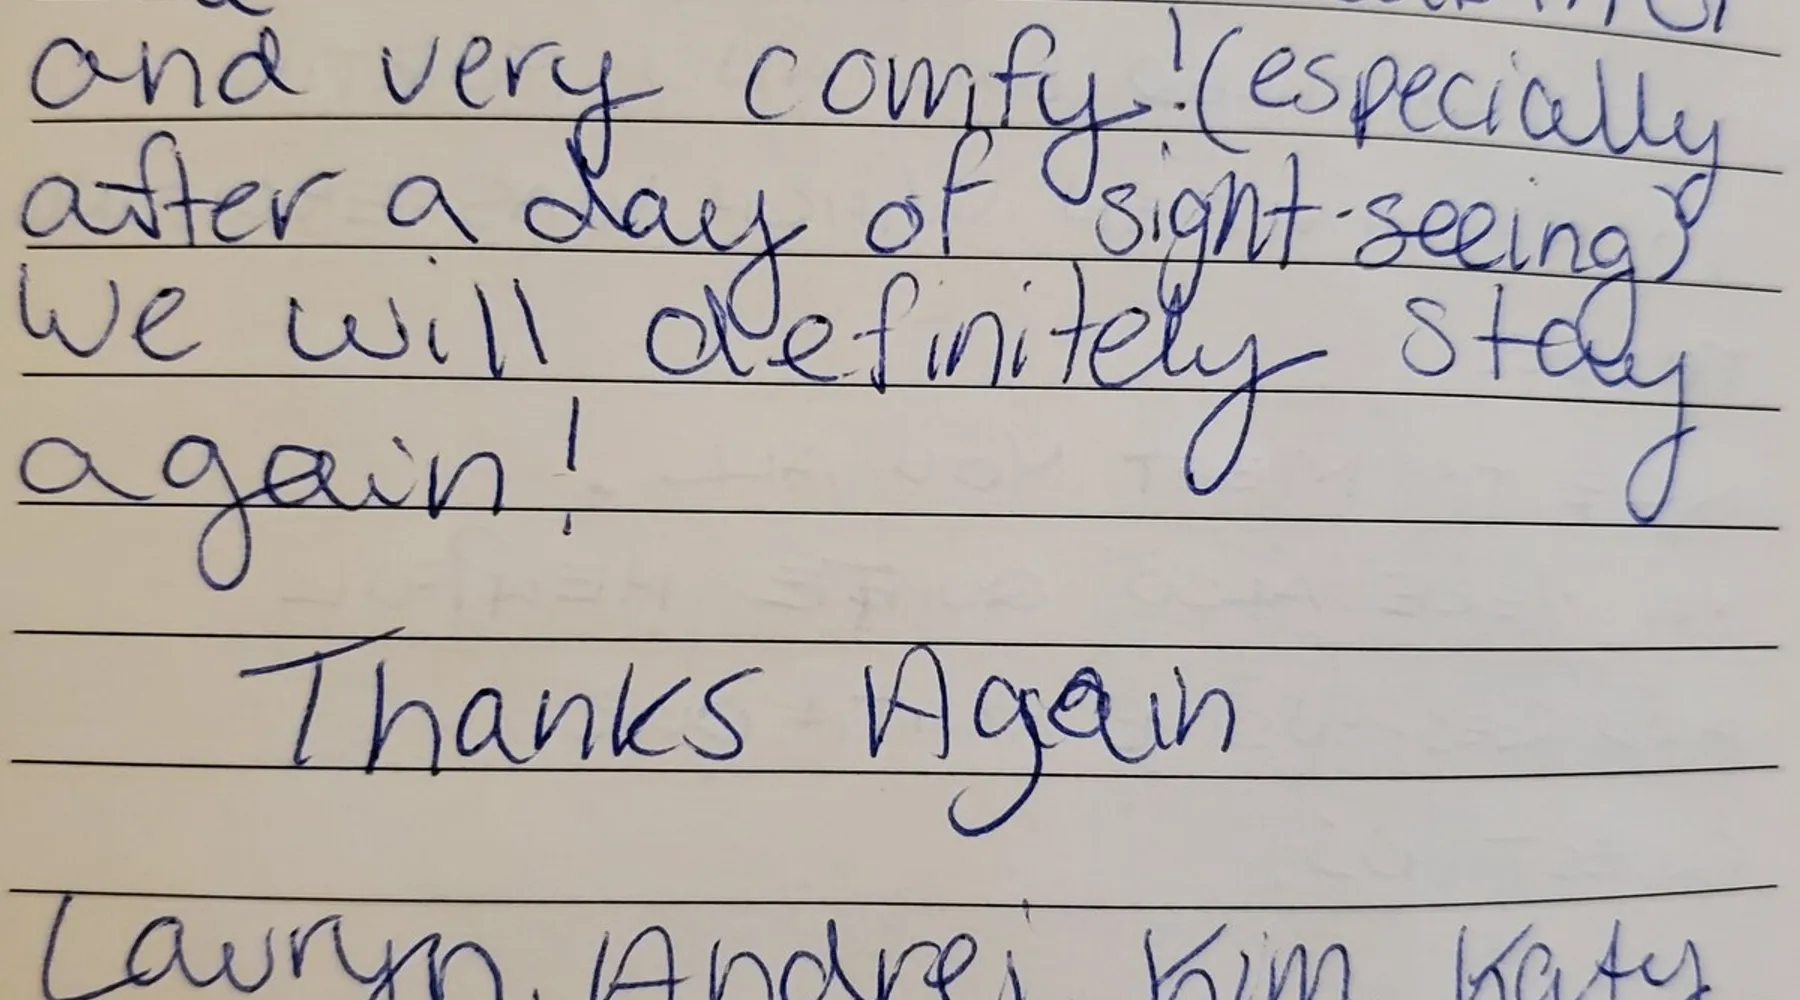 and very comfy! (especially
after a day of sight-seeing)
We will definitely stay
again!
Thanks Again
Lauryn, Andrei, Kim Katy